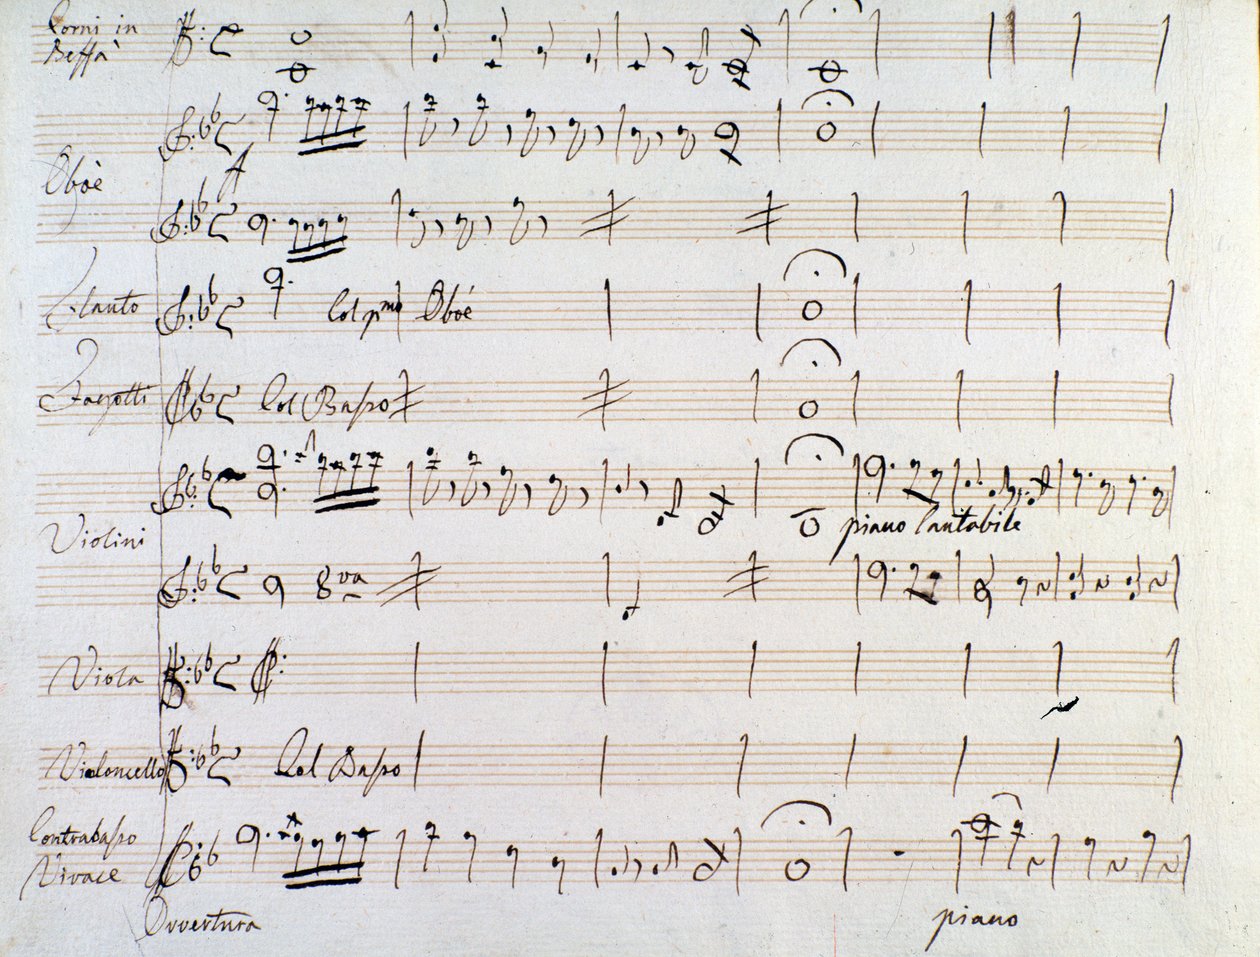 Corni in
Beffà
Oboè
A
Flauto
Col pmo Oboè
Fagotti
Col Basso
Violini
piano Cantabile
8va
Viola
Violoncello
Col Basso
Contrabasso
Vivace
Ovvertura
piano